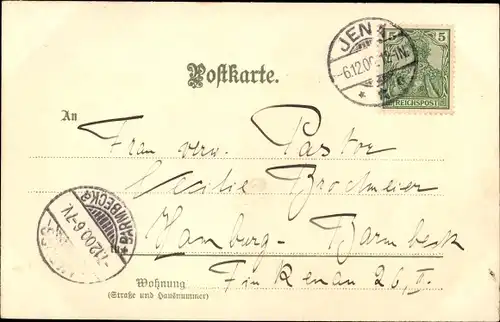 JENA
-6.12.00. 12-1N.
5 5
REICHSPOST
Postkarte.
An
Frau verw. Pastor
Cecilie Brockmeier
in Hamburg-Barmbeck
Finkenau 26, II.
BARMBECK
-7.12.00. 6-7V.
HAMBURG
Wohnung
(Straße und Hausnummer)